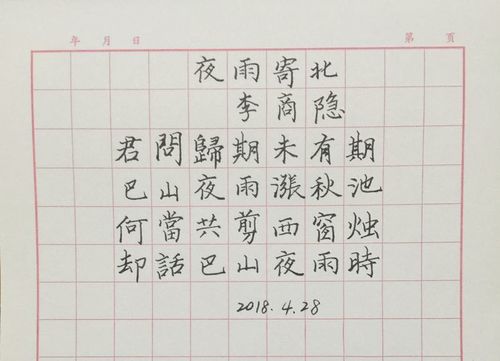 年 月 日 第 頁
夜雨寄北
李商隐
君問歸期未有期
巴山夜雨漲秋池
何當共剪西窗烛
却話巴山夜雨時
2018.4.28